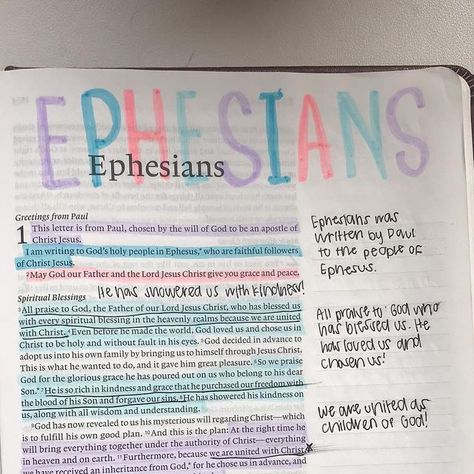 EPHESIANS
Ephesians
Greetings from Paul
1 This letter is from Paul, chosen by the will of God to be an apostle of
Christ Jesus.
I am writing to God's holy people in Ephesus,* who are faithful followers
of Christ Jesus.
2 May God our Father and the Lord Jesus Christ give you grace and peace.
Spiritual Blessings
He has showered us with kindness!
3 All praise to God, the Father of our Lord Jesus Christ, who has blessed us
with every spiritual blessing in the heavenly realms because we are united
with Christ. 4 Even before he made the world, God loved us and chose us in
Christ to be holy and without fault in his eyes. 5 God decided in advance to
adopt us into his own family by bringing us to himself through Jesus Christ.
This is what he wanted to do, and it gave him great pleasure. 6 So we praise
God for the glorious grace he has poured out on us who belong to his dear
Son.* 7 He is so rich in kindness and grace that he purchased our freedom with
the blood of his Son and forgave our sins. 8 He has showered his kindness on
us, along with all wisdom and understanding.
9 God has now revealed to us his mysterious will regarding Christ—which
is to fulfill his own good plan. 10 And this is the plan: At the right time he
will bring everything together under the authority of Christ—everything
in heaven and on earth. 11 Furthermore, because we are united with Christ,
we have received an inheritance from God,* for he chose us in advance, and
Ephesians was
written by Paul
to the people of
Ephesus.
All praise to God who
has blessed us. He
has loved us and
chosen us!
We are united as
children of God!